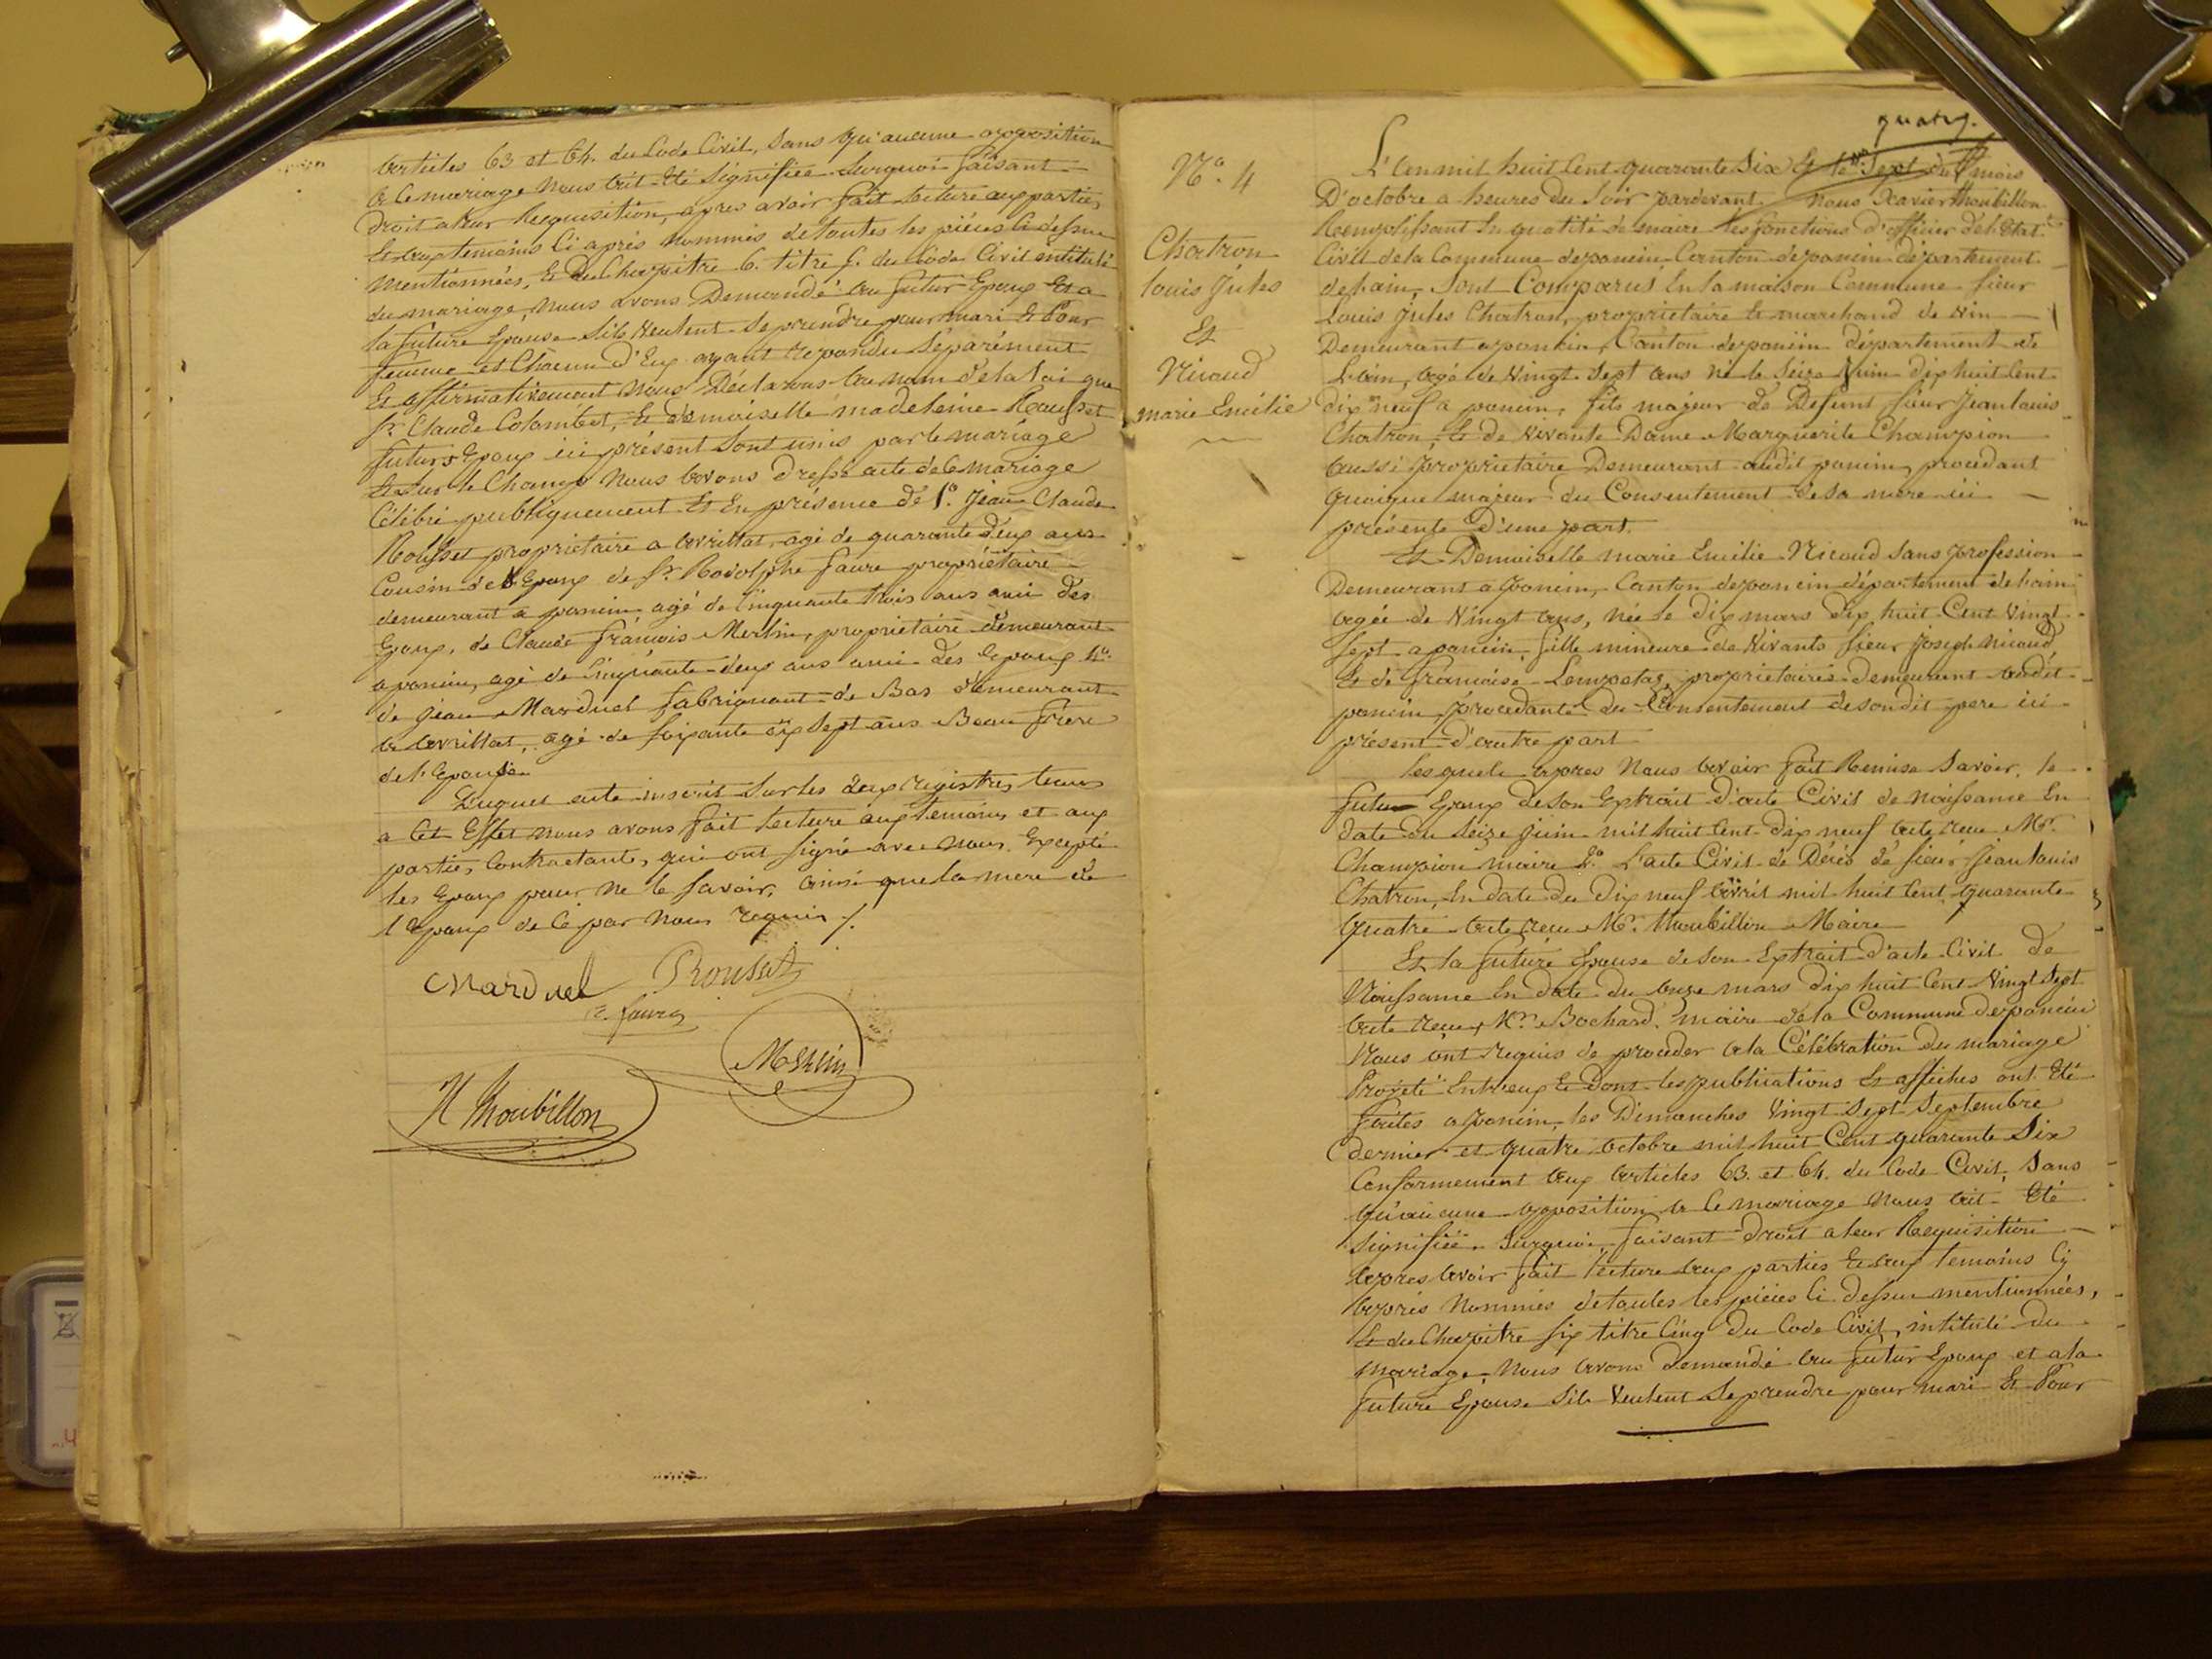 articles 63 et 64. du Code Civil, sans qu'aucune opposition
a ce mariage nous ait été signifiée Surquoi faisant
droit a leur Requisition, après avoir fait lecture aux parties
Et aux temoins Ci après nommés de toutes les pièces Ci dessus
mentionnées, Et du Chapitre 6. titre 5. du Code Civil intitulé
du mariage, nous avons Demandé au futur Epoux Et a
la future Epouse S'ils Veulent Se prendre pour mari Et Pour
femme et Chacun d'Eux ayant repondu Séparément
Et affirmativement Nous Déclarons au nom de la loi que
Sr. Claude Colombet, Et demoiselle madeleine Rousset
futurs Epoux ici présent Sont unis par le mariage
Et Sur le Champ Nous avons Dressé acte de Ce mariage
Célébré publiquement Et En présence de 1o. Jean Claude
Rousset propriétaire a avrillat, agé de quarante deux ans
Cousin de l'Epoux de Sr. Rodolphe faure propriétaire
demeurant a poncin agé de Cinquante trois ans ami des
Epoux, de Claude françois Merlin, propriétaire demeurant
a poncin, agé de Cinquante deux ans ami des Epoux 4o.
de Jean Marduel fabriquant de Bas demeurant
a avrillat, agé de soixante dix sept ans Beau frere
de l'Epouse
Duquel acte inscrit Sur les deux registres tenus
a Cet Effet nous avons fait lecture aux temoins et aux
parties Contractantes, qui ont signé avec nous Excepté
les Epoux pour ne le Savoir, ainsi que la mere de
l'Epoux de Ce par Nous requis /.
Marduel Rousset
R. faure
Merlin
X Moubillon
quatre.
No. 4
Chatron
louis Jules
Et
Nicoud
marie Emilie
L'an mil huit Cent quarante Six Et le Sept du mois
D'octobre a heures du Soir pardevant Nous Xavier Moubillon
Remplissant En qualité de maire les fonctions d'officier de l'Etat
Civil de la Commune de poncin Canton de poncin département
de l'ain, Sont Comparus En la maison Commune Sieur
Louis Jules Chatron, proprietaire Et marchand de Vin
Demeurant a poncin, Canton de poncin département de
L'ain, agé de Vingt Sept ans né le Seize Juin dix huit Cent
dix neuf a poncin, fils majeur de Defunt Sieur Jean louis
Chatron, Et de Vivante Dame Marguerite Champion
aussi proprietaire Demeurant audit poncin, procedant
quoique majeur du Consentement de sa mere ici
présente d'une part.
Et Demoiselle marie Emilie Nicoud Sans profession
Demeurant a poncin, Canton de poncin département de l'ain
agée de Vingt ans, née le dix mars dix huit Cent Vingt
Sept a poncin, fille mineure de Vivants Sieur Joseph Nicoud,
Et de françoise proprietaires demeurant audit
poncin, procedante du Consentement de son dit pere ici
présent d'autre part
Lesquels après Nous avoir fait Remise Savoir, le
futur Epoux de Son Extrait d'acte Civil de Naissance En
date du Seize Juin mil huit Cent dix neuf acte reçu Mr.
Champion maire 2o. L'acte Civil de Décès de sieur Jean louis
Chatron, En date du Dix neuf avril mil huit Cent quarante
quatre acte reçu Mr. Moubillon Maire
Et la future Epouse de Son Extrait d'acte Civil de
Naissance En date du onze mars dix huit Cent Vingt Sept
acte reçu Mr. Bochard, maire de la Commune de poncin
Nous ont requis de proceder a la Célébration du mariage
Projeté Entreeux Et dont les publications Et affiches ont Eté
faites a poncin, les Dimanches Vingt Sept Septembre
dernier et quatre octobre mil huit Cent quarante Six
Conformement aux articles 63. et 64. du Code Civil, Sans
qu'aucune opposition a Ce mariage Nous ait Eté
Signifiée. Surquoi faisant Droit a leur Requisition
après avoir fait lecture aux parties Et aux temoins Cy
après Nommés de toutes les pièces Ci dessus mentionnées,
Et du Chapitre Six titre Cinq du Code Civil, intitulé du
mariage, Nous avons demandé au futur Epoux et a la
future Epouse S'ils Veulent Se prendre pour mari Et Pour